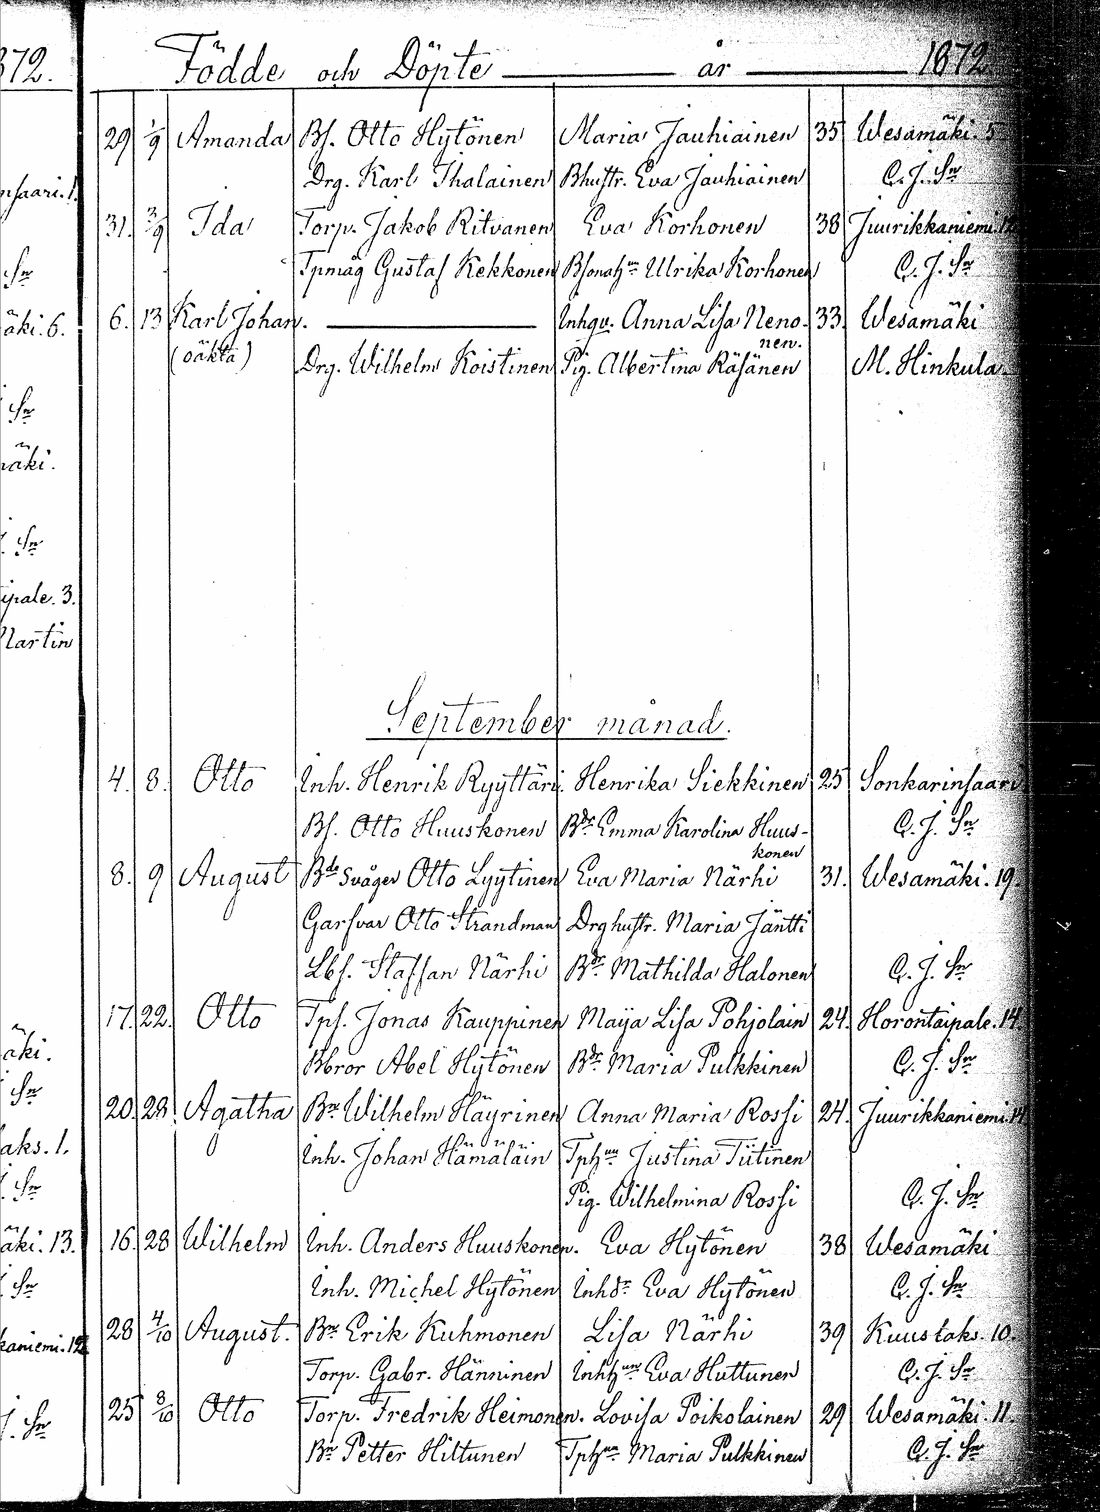 872.
Födde och Döpte år 1872.
29 1/9 Amanda Bf. Otto Hytönen Maria Jauhiainen 35 Wesamäki. 5
Drg. Karl Ihalainen Bhustr. Eva Jauhiainen C. J. Sn
nsaari. 1.
31. 3/9 Ida Torp. Jakob Ritvanen Eva Korhonen 38 Juurikkaniemi. 12
Sn Tpmåg Gustaf Kekkonen Ulrika Korhonen C. J. Sn
äki. 6. 6. 13 Karl Johan. Inhqv. Anna Lisa Neno- 33. Wesamäki
nen.
(oäkta) Drg. Wilhelm Koistinen Pig. Albertina Räsänen M. Hinkula
Sn
mäki.
J. Sn
ipale. 3.
Martin
September månad.
4. 8. Otto Inh. Henrik Ryyttäri. Henrika Siekkinen 25 Sonkarinsaari
Bf. Otto Huuskonen Bdr Emma Karolina Huus- C. J. Sn
konen
8. 9 August Bde Svåger Otto Lyytinen Eva Maria Närhi 31. Wesamäki. 19.
Garfvar Otto Strandman Drghustr. Maria Jäntti
Lbf. Staffan Närhi Bdr Mathilda Halonen C. J. Sn
17. 22. Otto Tpf. Jonas Kauppinen Maija Lisa Pohjolain 24. Horontaipale. 14
äki. Bbror Abel Hytönen Bdr Maria Pulkkinen C. J. Sn
Sn
20. 28. Agatha Bn Wilhelm Häyrinen Anna Maria Rossi 24. Juurikkaniemi. 14
aks. 1. Inh. Johan Hämäläin Tphun Justina Tiitinen
Sn Pig. Wilhelmina Rossi C. J. Sn
äki. 13. 16. 28 Wilhelm Inh. Anders Huuskonen. Eva Hytönen 38 Wesamäki
Sn Inh. Michel Hytönen Inhdr Eva Hytönen C. J. Sn
kaniemi. 12 28 4/10 August. Bn Erik Kuhmonen Lisa Närhi 39 Kuustaks. 10.
Torp. Gabr. Hänninen Inhhun Eva Huttunen C. J. Sn
J. Sn 25 8/10 Otto Torp. Fredrik Heimonen. Lovisa Poikolainen 29 Wesamäki. 11.
Bn Petter Hiltunen Tphun Maria Pulkkinen C. J. Sn